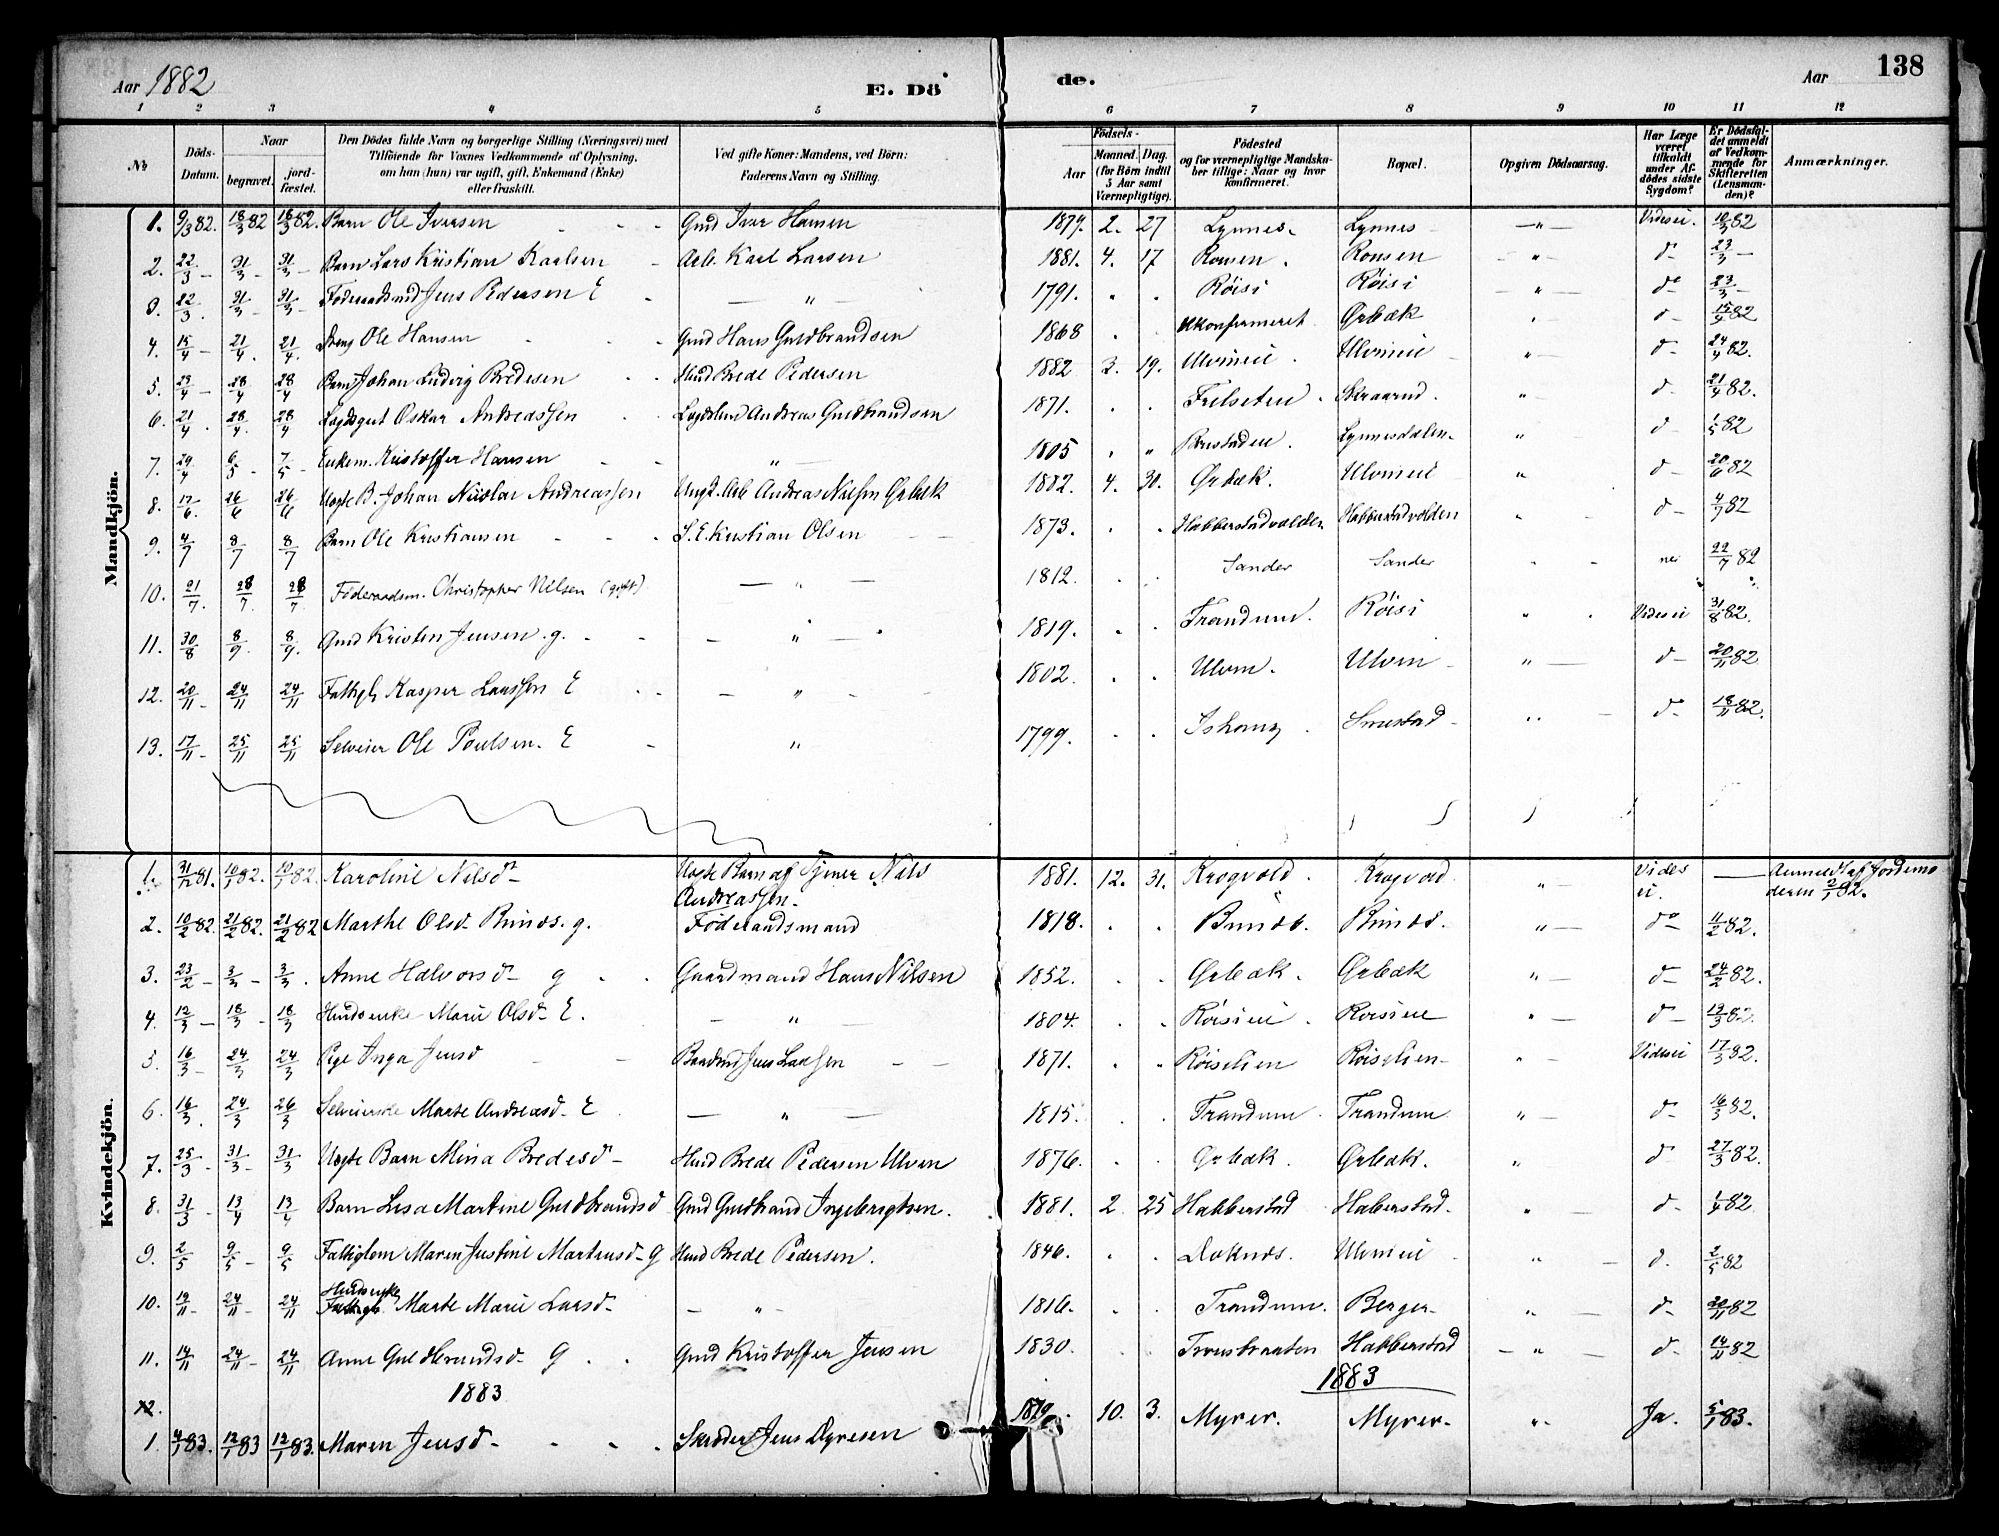 Aar 1882
E. Dö
de.
Aar
138
1 2 3 4 5 6 7 8 9 10 11 12
№
Döds-
Datum.
Naar
begravet.
jord-
fæstet.
Den Dödes fulde Navn og borgerlige Stilling (Næringsvei) med
Tilföiende for Voxnes Vedkommende af Oplysning,
om han (hun) var ugift, gift, Enkemand (Enke)
eller fraskilt.
Ved gifte Koner: Mandens, ved Börn:
Faderens Navn og Stilling.
Födsels-
Aar
Maaned. Dag.
(for Börn indtil
5 Aar samt
Værnepligtige).
Födested
og for værnepligtige Mandska-
ber tillige: Naar og hvor
konfirmeret.
Bopæl.
Opgiven Dödsaarsag.
Har Læge
været
tilkaldt
under Af-
dödes sidste
Sygdom?
Er Dödsfal-
det anmeldt
af Vedkom-
mende for
Skifteretten
(Lensman-
den)?
Anmærkninger.
Mandkjön.
1. 9/3 82. 18/3 82 18/3 82. Barn Ole Iversen Gmd Iver Hansen 1879. 2. 27 Lynnes. Lynnes — „ — Vides ei. 10/3 82
2. 22/3 — 31/3 — 31/3 Barn Lars Kristian Karlsen Arb. Karl Larsen 1881. 4. 17 Ronsen. Ronsen — „ — do 23/3 —
3. 22/3. 31/3 — 31/3 Föderaadsmd Jens Pedersen E — „ — 1791. Röisi Röisi — „ — do 23/3 —
4. 15/4 — 21/4. 21/4. Dreng Ole Hansen Gmd Hans Guldbrandsen 1868 Ukonfirmeret. Ørbæk do 15/4 82
5. 23/4 — 28/4 28/4 Barn Johan Ludvig Bredesen Hmd Brede Pedersen 1882 3. 19. Ulvineie. Ulvineie „ — do 24/4 82.
6. 21/4. 28/4. 28/4 Lægdsgut Oskar Andreassen Andreas Guldbrandsen 1871. „ — do 21/4 82.
7. 29/4 6/5 — 7/5 — Enkem. Kristoffer Hansen „ — 1805 Lynnesdalen. „ — do 1/5 82
8. 17/6. 26/6 26/6 Uægte B. Johan Nicolai Andreassen Ungk. Arb Andreas Nilsen Ørbæk 1882. 4. 30. Ørbæk. Ulvineie „ do 20/6 82
9. 4/7 8/7 8/7 Barn Ole Kristiansen S. E. Kristian Olsen 1873. Habberstadvolden Habberstadvolden „ do 4/7 82
10. 21/7. 28/7. 28/7 Föderaadsm. Christopher Nilsen (gift) — „ — 1812. Sander Sander „ nei 22/7 82
11. 30/8 8/9 8/9. Gmd Kristen Jensen. g. — „ — 1819. Trandum. Röisi „ Vides ei 31/8 82.
12. 20/11 — 24/11 24/11 Fattigl. Kasper Larssen E — „ — 1802. Ulvin. Ulvin „ — do 20/11 82
13. 17/11 — 25/11 25/11 Selveier Ole Poulsen. E „ 1799. Smestad „ — do 18/11 82.
Kvindekjön.
1. 31/12 81. 10/1 82. 10/1 82. Karoline Nilsd. Uægte Barn af Tjener Nils 1881. 12. 31. Krogvold. Krogvold. „ — Vides —— Anmeldt af Jordemo
Andreassen. ei. deren 2/1 82.
2. 10/2 82. 21/2 82. 21/2 82 Marthe Olsd. Bunds. g. Föderaadsmand 1818. Bunds. Bunds. „ — do 11/2 82.
3. 23/2 — 3/3 — 3/3. Anne Halvorsd. g Gaardmand Hans Nilsen 1852. Ørbæk. Ørbæk „ — do 24/2 82.
4. 12/3 — 18/3 — 18/3 Husmdsenke Marie Olsd. E. — „ — 1804. Röisieie Röisieie „ — do 13/3 82.
5. 16/3 — 24/3 24/3 Pige Inga Jensd Jens Larssen 1871. Röiselien Röiselien — „ — Vides ei 17/3 82.
6. 16/3. 24/3 26/3 Selveierske Marte Andreasd. E — „ — 1815. Trandum. Trandum „ — do 16/3 82.
7. 25/3 — 31/3 — 31/3 Uægte Barn Mina Bredesd. Hmd Brede Pedersen Ulven 1876. Ørbæk. Ørbæk. „ do 27/3 82.
8. 31/3 — 13/4 13/4 Barn Lisa Martine Guldbrandsd Gmd Guldbrand Ingebrigtsen. 1881. 2. 25 Habberstad Haberstad. „ do 1/4 82.
9. 2/5 9/5 — 9/5 Fattiglem Maren Justine Martinsd. G Hmd Brede Pedersen. 1846. Doknes. Ulvineie „ — do. 2/5 82
10. 19/11 — 24/11 — 24/11 Husmdsenke
Fattigl. Marte Marie Larsd. — „ — 1816. Trandum. Berger. „ — do 20/11 82
11. 14/11 24/11 — 24/11 Anne Guldbrandsd. G Gmd Kristoffer Jensen 1830. Habberstad — „ — do 14/11 82
1883 1883
12.
1. 4/1 83. 12/1 83 12/1 83. Maren Jensd. Skræder Jens Dyresen 1879. 10. 3. Myrer. Myrer. „ Ja. 5/1 83.